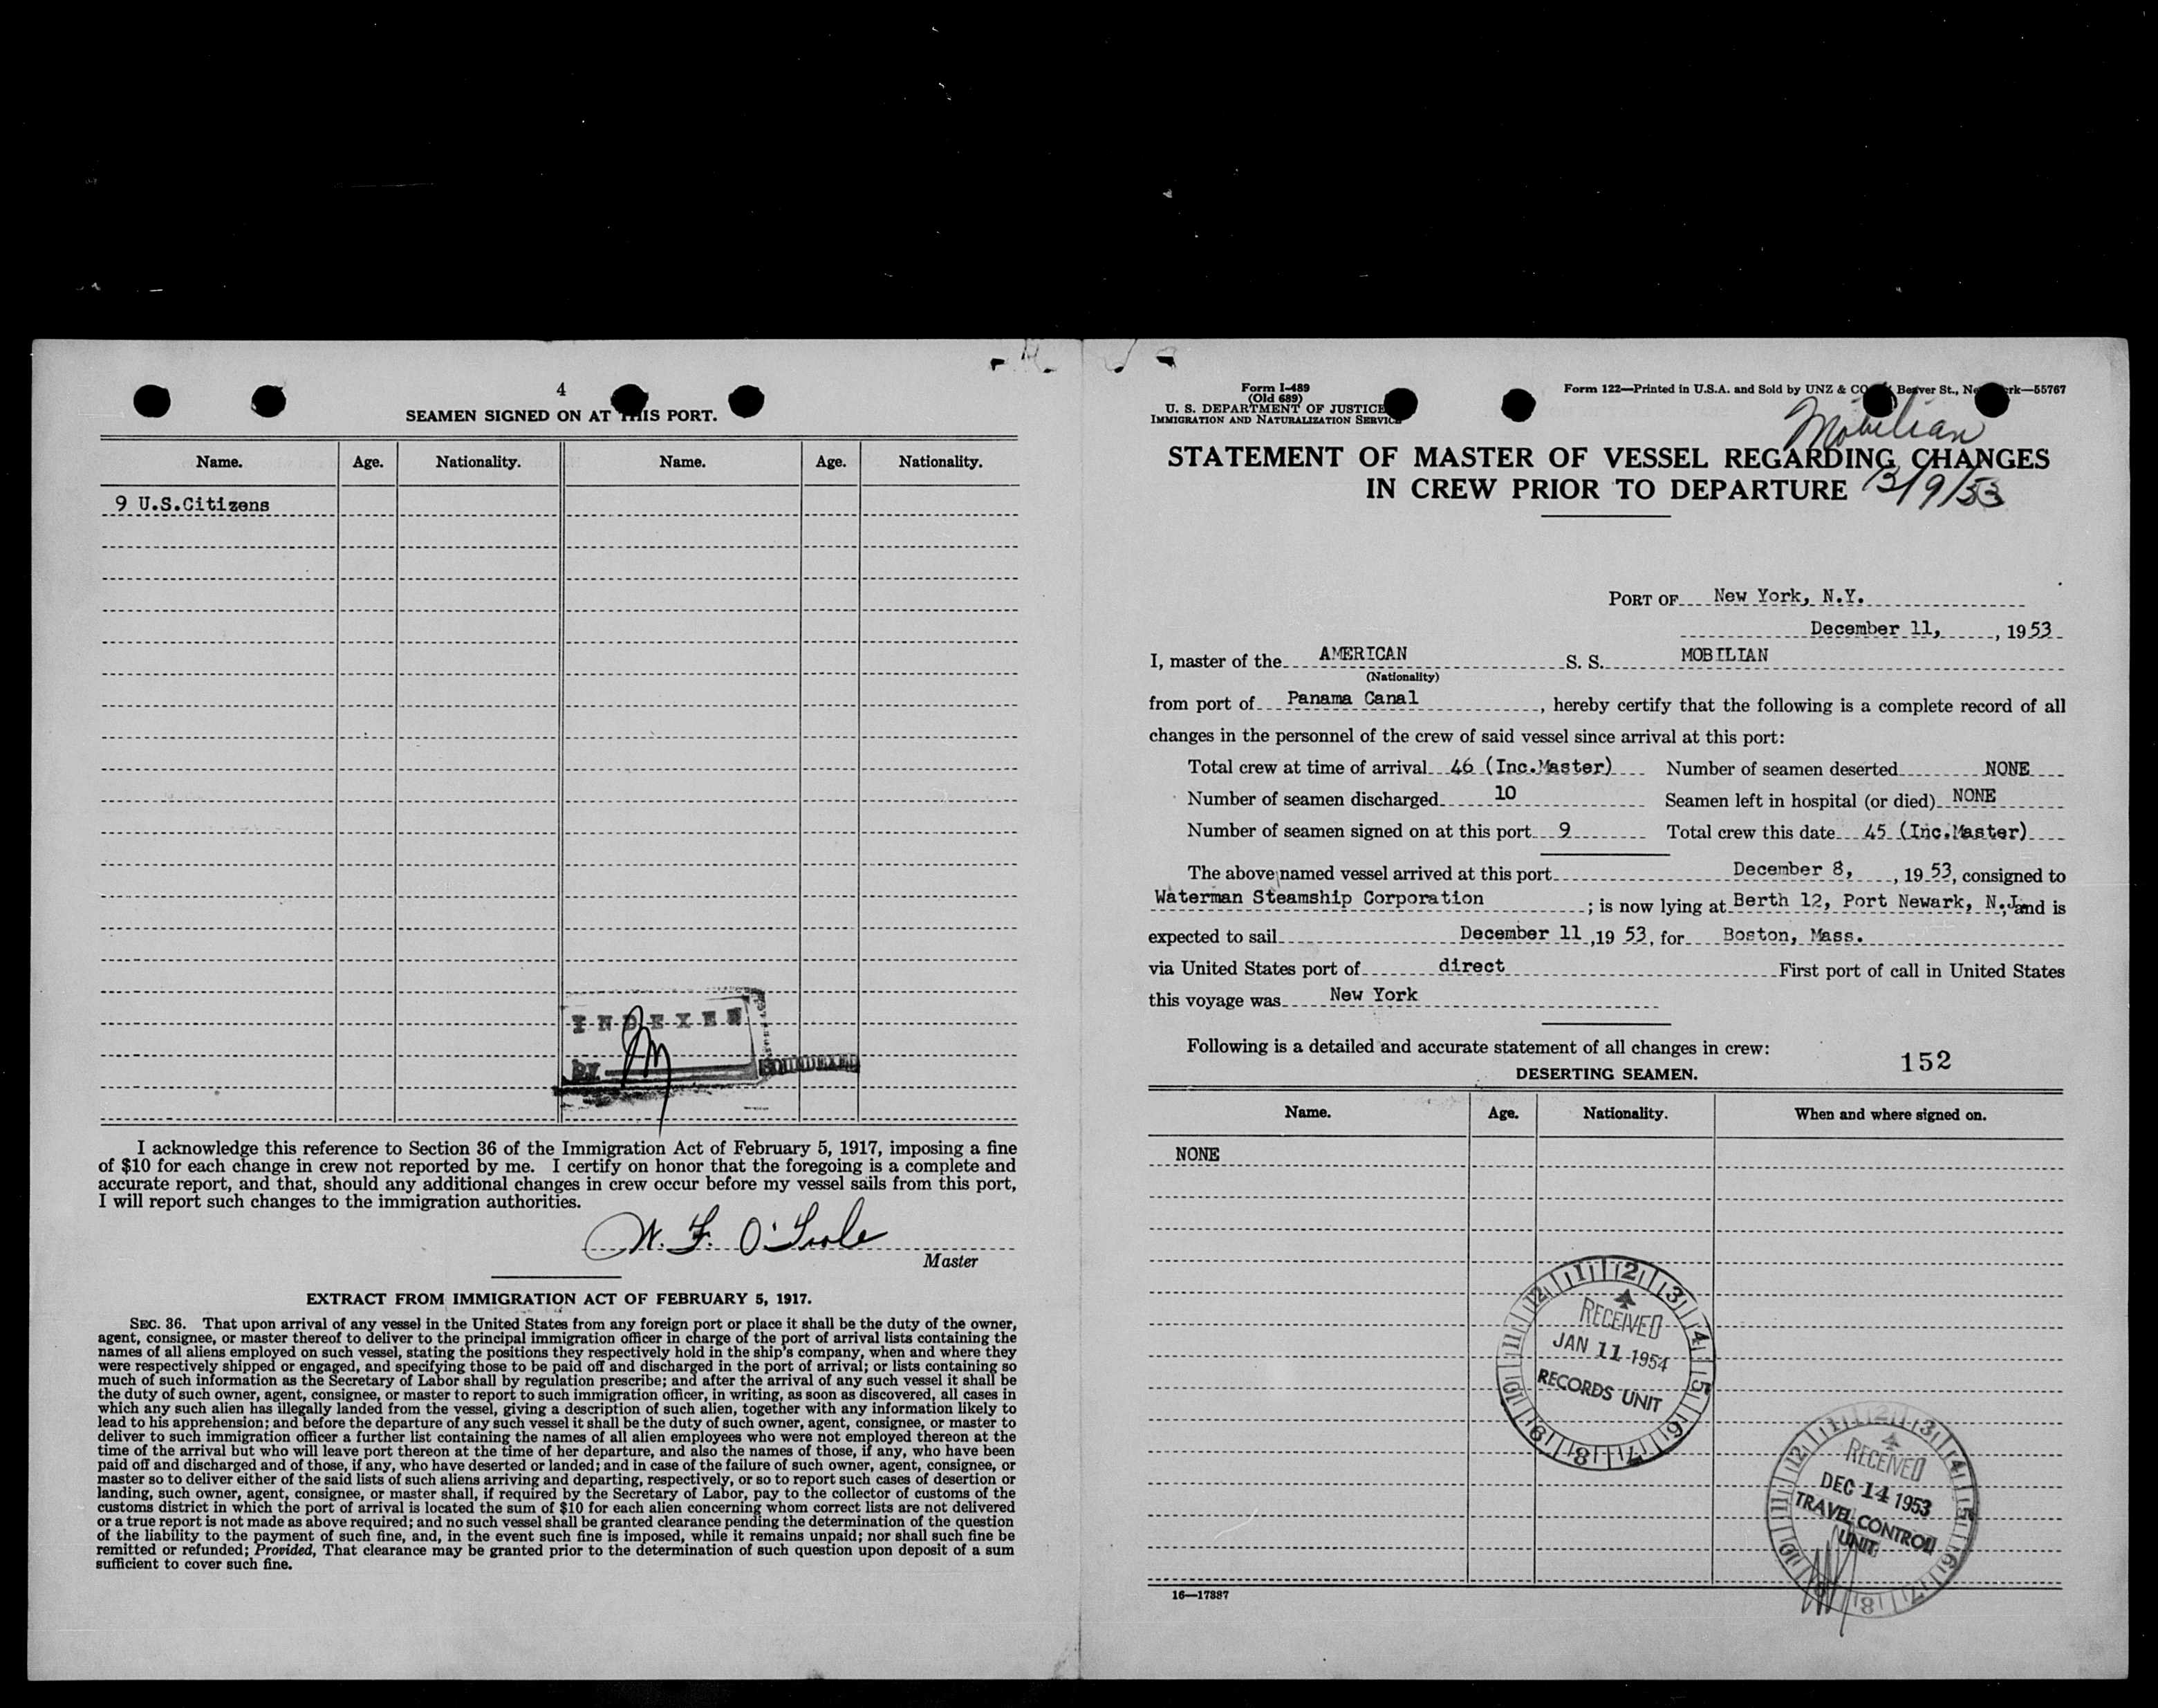 4
SEAMEN SIGNED ON AT THIS PORT.
Name. Age. Nationality. Name. Age. Nationality.
9 U.S.Citizens
INDEXED
BY
SOUNDEXED
I acknowledge this reference to Section 36 of the Immigration Act of February 5, 1917, imposing a fine
of $10 for each change in crew not reported by me. I certify on honor that the foregoing is a complete and
accurate report, and that, should any additional changes in crew occur before my vessel sails from this port,
I will report such changes to the immigration authorities.
W. F. O'Toole
Master
EXTRACT FROM IMMIGRATION ACT OF FEBRUARY 5, 1917.
SEC. 36. That upon arrival of any vessel in the United States from any foreign port or place it shall be the duty of the owner,
agent, consignee, or master thereof to deliver to the principal immigration officer in charge of the port of arrival lists containing the
names of all aliens employed on such vessel, stating the positions they respectively hold in the ship's company, when and where they
were respectively shipped or engaged, and specifying those to be paid off and discharged in the port of arrival; or lists containing so
much of such information as the Secretary of Labor shall by regulation prescribe; and after the arrival of any such vessel it shall be
the duty of such owner, agent, consignee, or master to report to such immigration officer, in writing, as soon as discovered, all cases in
which any such alien has illegally landed from the vessel, giving a description of such alien, together with any information likely to
lead to his apprehension; and before the departure of any such vessel it shall be the duty of such owner, agent, consignee, or master to
deliver to such immigration officer a further list containing the names of all alien employees who were not employed thereon at the
time of the arrival but who will leave port thereon at the time of her departure, and also the names of those, if any, who have been
paid off and discharged and of those, if any, who have deserted or landed; and in case of the failure of such owner, agent, consignee, or
master so to deliver either of the said lists of such aliens arriving and departing, respectively, or so to report such cases of desertion or
landing, such owner, agent, consignee, or master shall, if required by the Secretary of Labor, pay to the collector of customs of the
customs district in which the port of arrival is located the sum of $10 for each alien concerning whom correct lists are not delivered
or a true report is not made as above required; and no such vessel shall be granted clearance pending the determination of the question
of the liability to the payment of such fine, and, in the event such fine is imposed, while it remains unpaid; nor shall such fine be
remitted or refunded; Provided, That clearance may be granted prior to the determination of such question upon deposit of a sum
sufficient to cover such fine.
Form I-489
(Old 689)
U. S. DEPARTMENT OF JUSTICE
IMMIGRATION AND NATURALIZATION SERVICE
Form 122—Printed in U.S.A. and Sold by UNZ & CO Beaver St., New York—55767
Mobilian
STATEMENT OF MASTER OF VESSEL REGARDING CHANGES
IN CREW PRIOR TO DEPARTURE
/9/53
PORT OF New York, N.Y.
December 11, , 1953
I, master of the AMERICAN S. S. MOBILIAN
(Nationality)
from port of Panama Canal , hereby certify that the following is a complete record of all
changes in the personnel of the crew of said vessel since arrival at this port:
Total crew at time of arrival 46 (Inc.Master) Number of seamen deserted NONE
Number of seamen discharged 10 Seamen left in hospital (or died) NONE
Number of seamen signed on at this port 9 Total crew this date 45 (Inc.Master)
The above named vessel arrived at this port December 8, , 1953, consigned to
Waterman Steamship Corporation ; is now lying at Berth 12, Port Newark, N.J. and is
expected to sail December 11 ,19 53, for Boston, Mass.
via United States port of direct First port of call in United States
this voyage was New York
Following is a detailed and accurate statement of all changes in crew:
152
DESERTING SEAMEN.
Name. Age. Nationality. When and where signed on.
NONE
12 1 2 3 4 5 6 7 8 9 10 11
RECEIVED
JAN 11 1954
RECORDS UNIT
12 1 2 3 4 5 6 7 8 9 10 11
RECEIVED
DEC 14 1953
TRAVEL CONTROL
UNIT
16—17887